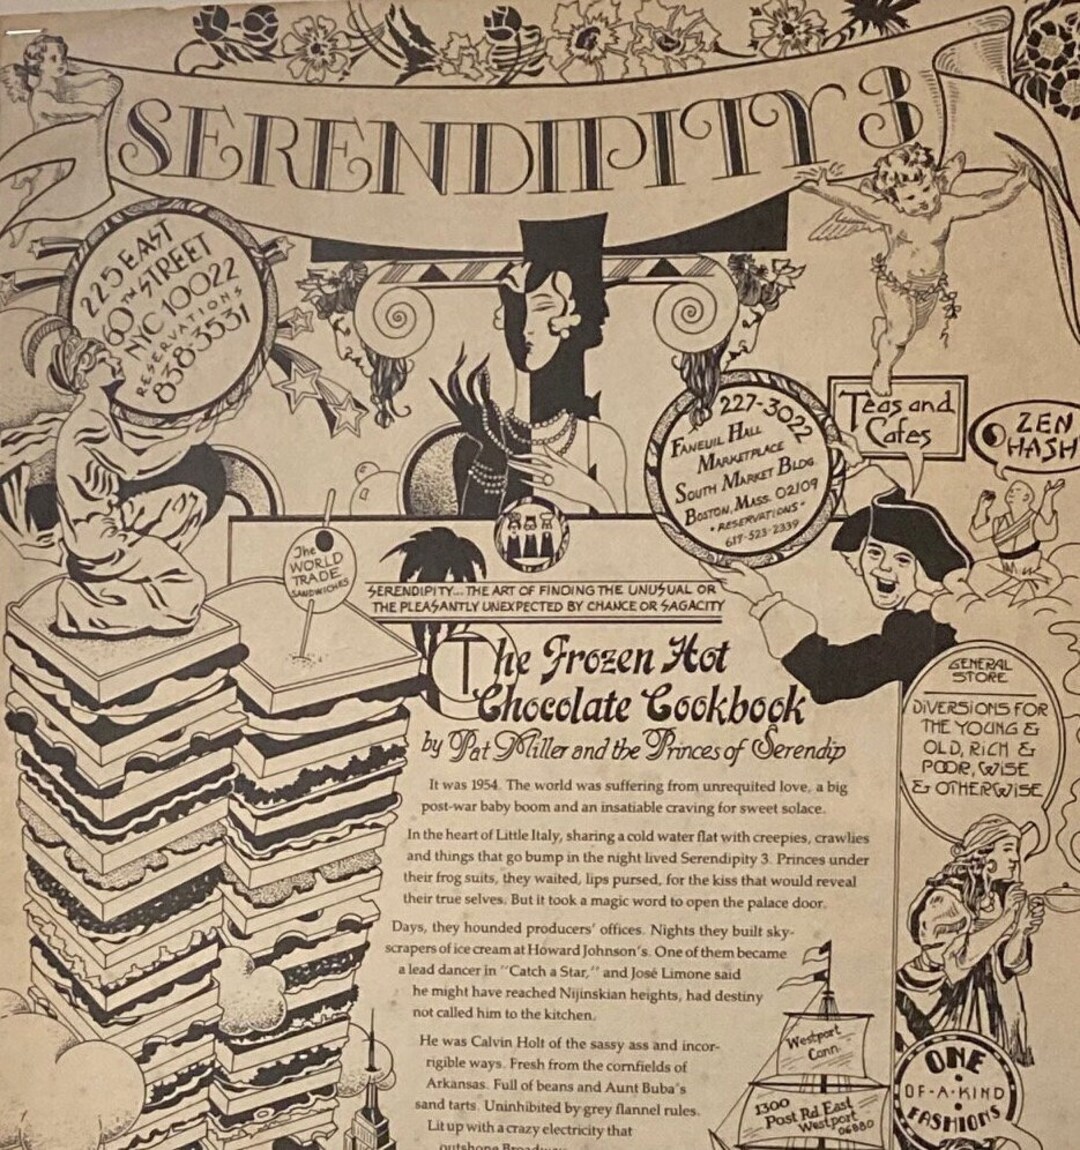 SERENDIPITY 3
225 EAST
60TH STREET
NYC 10022
RESERVATIONS
838-3531
227-3022
FANEUIL HALL
MARKETPLACE
SOUTH MARKET BLDG.
BOSTON, MASS. 02109
• RESERVATIONS •
617-523-2339
Teas and
Cafes
ZEN
HASH
The
WORLD
TRADE
SANDWICHES
SERENDIPITY... THE ART OF FINDING THE UNUSUAL OR
THE PLEASANTLY UNEXPECTED BY CHANCE OR SAGACITY
The Frozen Hot
Chocolate Cookbook
by Pat Miller and the Princes of Serendip
It was 1954. The world was suffering from unrequited love, a big
post-war baby boom and an insatiable craving for sweet solace.
In the heart of Little Italy, sharing a cold water flat with creepies, crawlies
and things that go bump in the night lived Serendipity 3. Princes under
their frog suits, they waited, lips pursed, for the kiss that would reveal
their true selves. But it took a magic word to open the palace door.
Days, they hounded producers' offices. Nights they built sky-
scrapers of ice cream at Howard Johnson's. One of them became
a lead dancer in "Catch a Star," and José Limone said
he might have reached Nijinskian heights, had destiny
not called him to the kitchen.
He was Calvin Holt of the sassy ass and incor-
rigible ways. Fresh from the cornfields of
Arkansas. Full of beans and Aunt Buba's
sand tarts. Uninhibited by grey flannel rules.
Lit up with a crazy electricity that
outshone Broadway
GENERAL
STORE
DIVERSIONS FOR
THE YOUNG &
OLD, RICH &
POOR, WISE
& OTHERWISE
Westport
Conn.
1300
Post Rd. East
Westport
06880
ONE
OF-A-KIND
FASHIONS